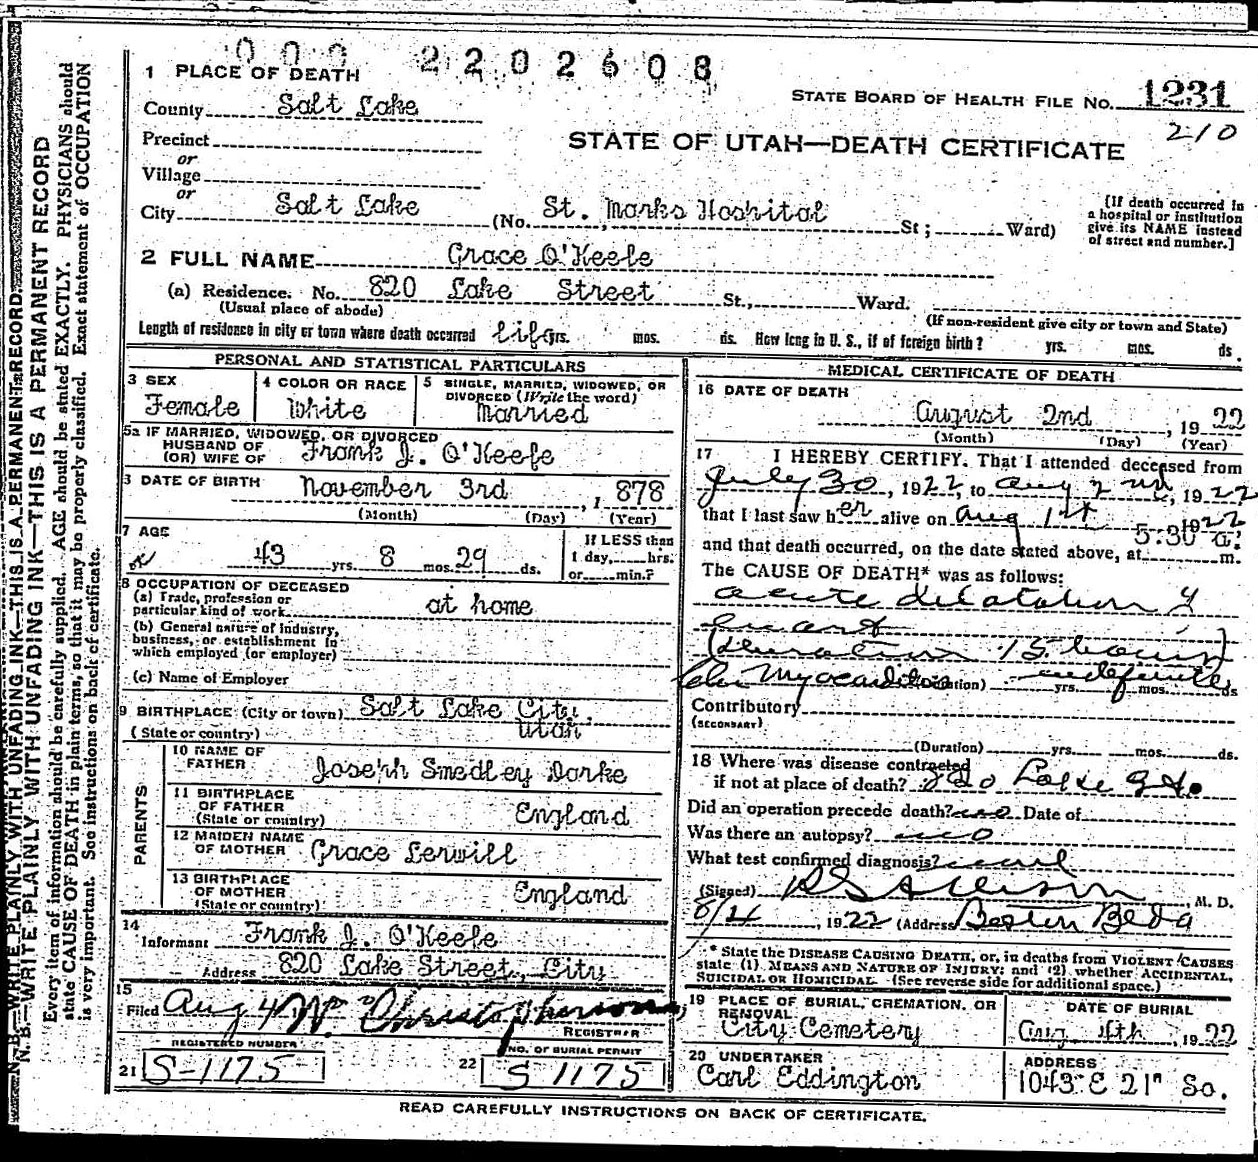 000 2202608
1 PLACE OF DEATH
STATE BOARD OF HEALTH FILE NO. 1231
210
County Salt Lake
Precinct
or
Village
or
City Salt Lake (No. St. Marks Hospital St; Ward)
STATE OF UTAH—DEATH CERTIFICATE
[If death occurred in
a hospital or institution
give its NAME instead
of street and number.]
2 FULL NAME Grace O'Keefe
(a) Residence. No. 820 Lake Street St., Ward.
(Usual place of abode)
(If non-resident give city or town and State)
Length of residence in city or town where death occurred life yrs. mos. ds. How long in U. S., if of foreign birth? yrs. mos. ds.
PERSONAL AND STATISTICAL PARTICULARS
3 SEX
Female
4 COLOR OR RACE
White
5 SINGLE, MARRIED, WIDOWED, OR
DIVORCED (Write the word)
Married
5a IF MARRIED, WIDOWED, OR DIVORCED
HUSBAND OF
(OR) WIFE OF Frank J. O'Keefe
3 DATE OF BIRTH November 3rd, 1878
(Month) (Day) (Year)
7 AGE
43 yrs. 8 mos. 29 ds.
If LESS than
1 day, hrs.
or min.?
8 OCCUPATION OF DECEASED
(a) Trade, profession or
particular kind of work at home
(b) General nature of industry,
business, or establishment in
which employed (or employer)
(c) Name of Employer
9 BIRTHPLACE (City or town) Salt Lake City,
(State or country) Utah
PARENTS
10 NAME OF
FATHER Joseph Smedley Dorke
11 BIRTHPLACE
OF FATHER
(State or country) England
12 MAIDEN NAME
OF MOTHER Grace Lerwill
13 BIRTHPLACE
OF MOTHER
(State or country) England
14
Informant Frank J. O'Keefe
Address 820 Lake Street, City
15
Filed Aug 4 W. Christopherson
REGISTRAR
REGISTERED NUMBER
21 S-1175
NO. OF BURIAL PERMIT
22 S 1175
MEDICAL CERTIFICATE OF DEATH
16 DATE OF DEATH
August 2nd, 1922
(Month) (Day) (Year)
17 I HEREBY CERTIFY. That I attended deceased from
July 30, 1922, to Aug 2nd, 1922
that I last saw her alive on Aug 1st 1922
and that death occurred, on the date stated above, at 5:30 a. m.
The CAUSE OF DEATH* was as follows:
acute dilatation of
heart
(duration 15 hours)
Myocarditis (Duration) indefinite yrs. mos. ds
Contributory
(SECONDARY)
(Duration) yrs. mos. ds.
18 Where was disease contracted
if not at place of death? 820 Lake St.
Did an operation precede death? no Date of
Was there an autopsy? no
What test confirmed diagnosis?
(Signed) M. D.
8/4, 1922 (Address Boston Bldg
* State the DISEASE CAUSING DEATH, or, in deaths from VIOLENT CAUSES
state (1) MEANS AND NATURE OF INJURY; and (2) whether ACCIDENTAL,
SUICIDAL, OR HOMICIDAL. (See reverse side for additional space.)
19 PLACE OF BURIAL, CREMATION, OR
REMOVAL
City Cemetery
DATE OF BURIAL
Aug 4th, 1922
20 UNDERTAKER
Carl Eddington
ADDRESS
1043 E 21" So.
READ CAREFULLY INSTRUCTIONS ON BACK OF CERTIFICATE.
N. B.—WRITE PLAINLY WITH UNFADING INK—THIS IS A PERMANENT RECORD
N. B.—WRITE PLAINLY WITH UNFADING INK—THIS IS A PERMANENT RECORD
Every item of information should be carefully supplied. AGE should be stated EXACTLY. PHYSICIANS should
state CAUSE OF DEATH in plain terms, so that it may be properly classified. Exact statement of OCCUPATION
is very important. See instructions on back of certificate.